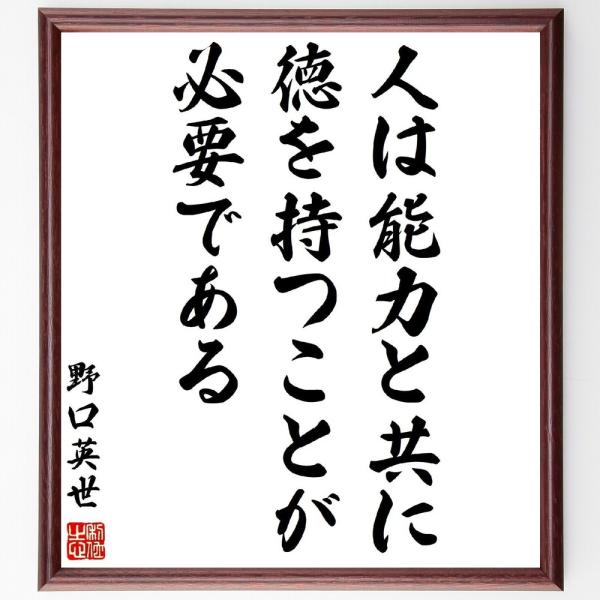 人は能力と共に
徳を持つことが
必要である
野口英世